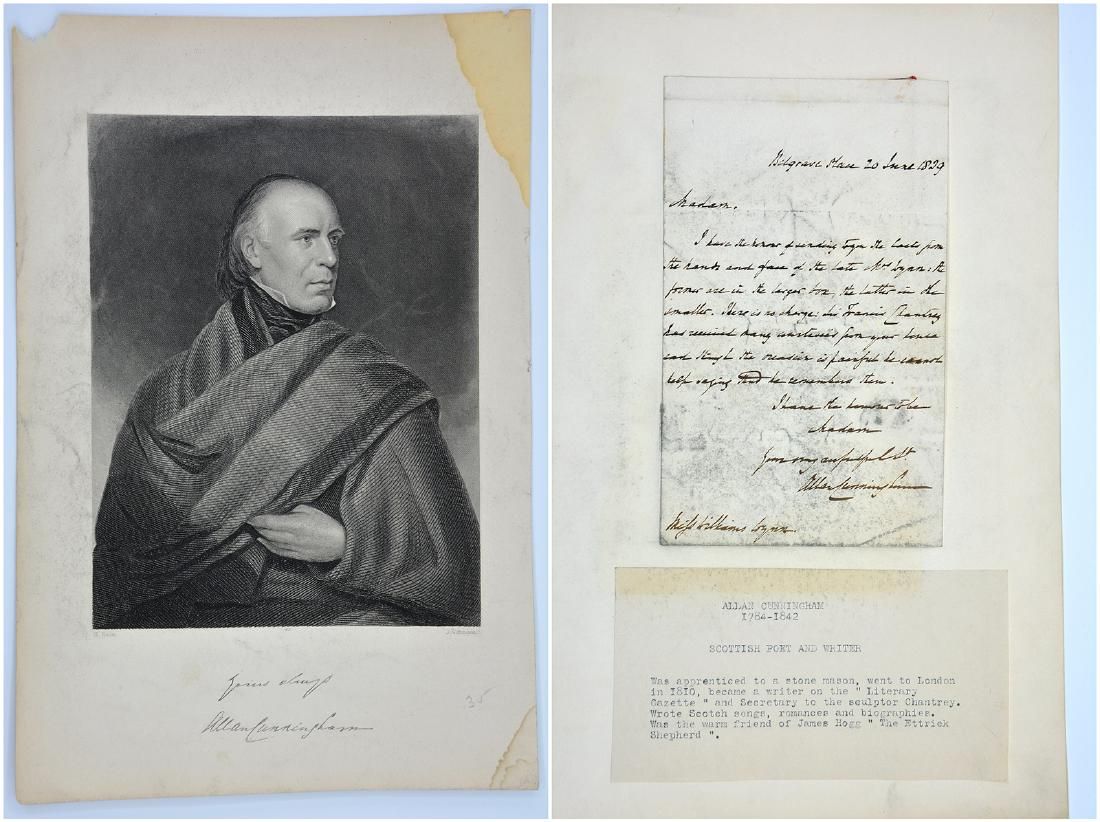 Yours always
Allan Cunningham
35
Belgrave Place 20 June 1829
Madam.
I have the honour of sending to you the casts from
the hands and face of the late Mrs Wynn: the
former are in the larger box, the latter in the
smaller. There is no charge: Sir Francis Chantrey
has received many kindnesses from your house
and though the occasion is painful he cannot
help saying that he remembers them.
I have the honour to be
Madam
Your very
Allan Cunningham
Miss Williams Wynn
ALLAN CUNNINGHAM
1784-1842
SCOTTISH POET AND WRITER
Was apprenticed to a stone mason, went to London
in 1810, became a writer on the " Literary
Gazette " and Secretary to the sculptor Chantrey.
Wrote Scotch songs, romances and biographies.
Was the warm friend of James Hogg " The Ettrick
Shepherd ".